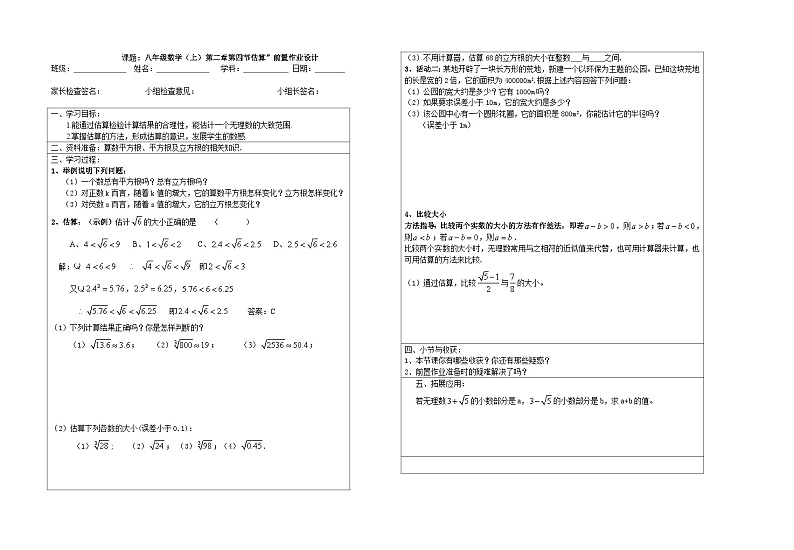 课题：八年级数学（上）第二章第四节估算”前置作业设计
班级：____________ 姓名：____________ 学科：__________ 日期：_______
家长检查签名： 小组检查意见： 小组长签名：
一、学习目标：
1.能通过估算检验计算结果的合理性，能估计一个无理数的大致范围.
2.掌握估算的方法，形成估算的意识，发展学生的数感.
二、资料准备：算数平方根、平方根及立方根的相关知识.
三、学习过程：
1、举例说明下列问题：
（1）一个数总有平方根吗？总有立方根吗？
（2）对正数k而言，随着k值的增大，它的算数平方根怎样变化？立方根怎样变化？
（3）对负数a而言，随着a值的增大，它的立方根怎变化？
2、估算：（示例）估计√6的大小正确的是 （ ）
A、4<√6<9 B、1<√6<2 C、2.4<√6<2.5 D、2.5<√6<2.6
解：Q 4<6<9 ∴ √4<√6<√9 即2<√6<3
又Q 2.4²=5.76，2.5²=6.25，5.76<6<6.25
∴ √5.76<√6<√6.25 即2.4<√6<2.5 答案：C
（1）下列计算结果正确吗？你是怎样判断的？
（1）√13.6≈3.6； （2）∛800≈19； （3）√2536≈50.4；
（2）估算下列各数的大小(误差小于0.1)：
（1）∛28； （2）√24；（3）∛98；（4）√0.45.
（3）不用计算器，估算68的立方根的大小在整数___与____之间.
3、活动二：某地开辟了一块长方形的荒地，新建一个以环保为主题的公园。已知这块荒地
的长是宽的2倍，它的面积为400000m².根据上述内容回答下列问题：
（1）公园的宽大约是多少？它有1000m吗？
（2）如果要求误差小于10m，它的宽大约是多少？
（3）该公园中心有一个圆形花圃，它的面积是800m²，你能估计它的半径吗？
（误差小于1m）
4、比较大小
方法指导：比较两个实数的大小的方法有作差法，即若a−b>0，则a>b；若a−b<0，
则a<b；若a−b=0，则a=b.
比较两个实数的大小时，无理数常用与之相符的近似值来代替，也可用计算器来计算，也
可用估算的方法来比较.
（1）通过估算，比较(√5−1)/2与7/8的大小。
四、小节与收获：
1、本节课你有哪些收获？你还有那些疑惑？
2、前置作业准备时的疑难解决了吗？
五、拓展应用：
若无理数3+√5的小数部分是a，3−√5的小数部分是b，求a+b的值。